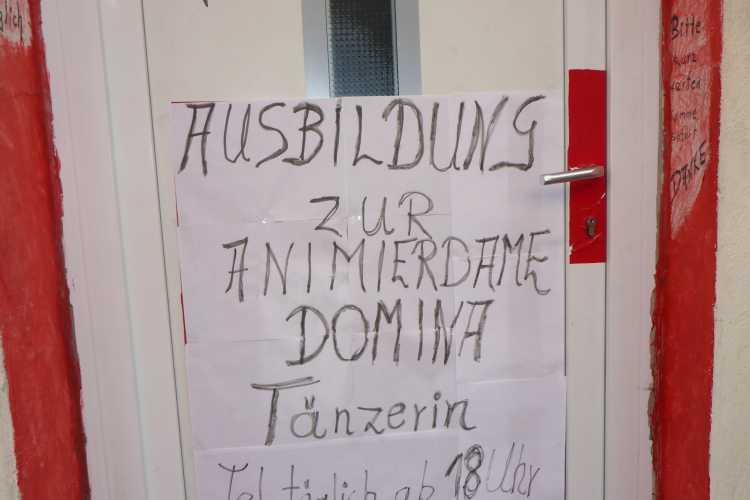 AUSBILDUNG
ZUR
ANIMIERDAME
DOMINA
Tänzerin
Tel täglich ab 18 Uhr
Bitte
kurz
warten
komme
sofort
DANKE